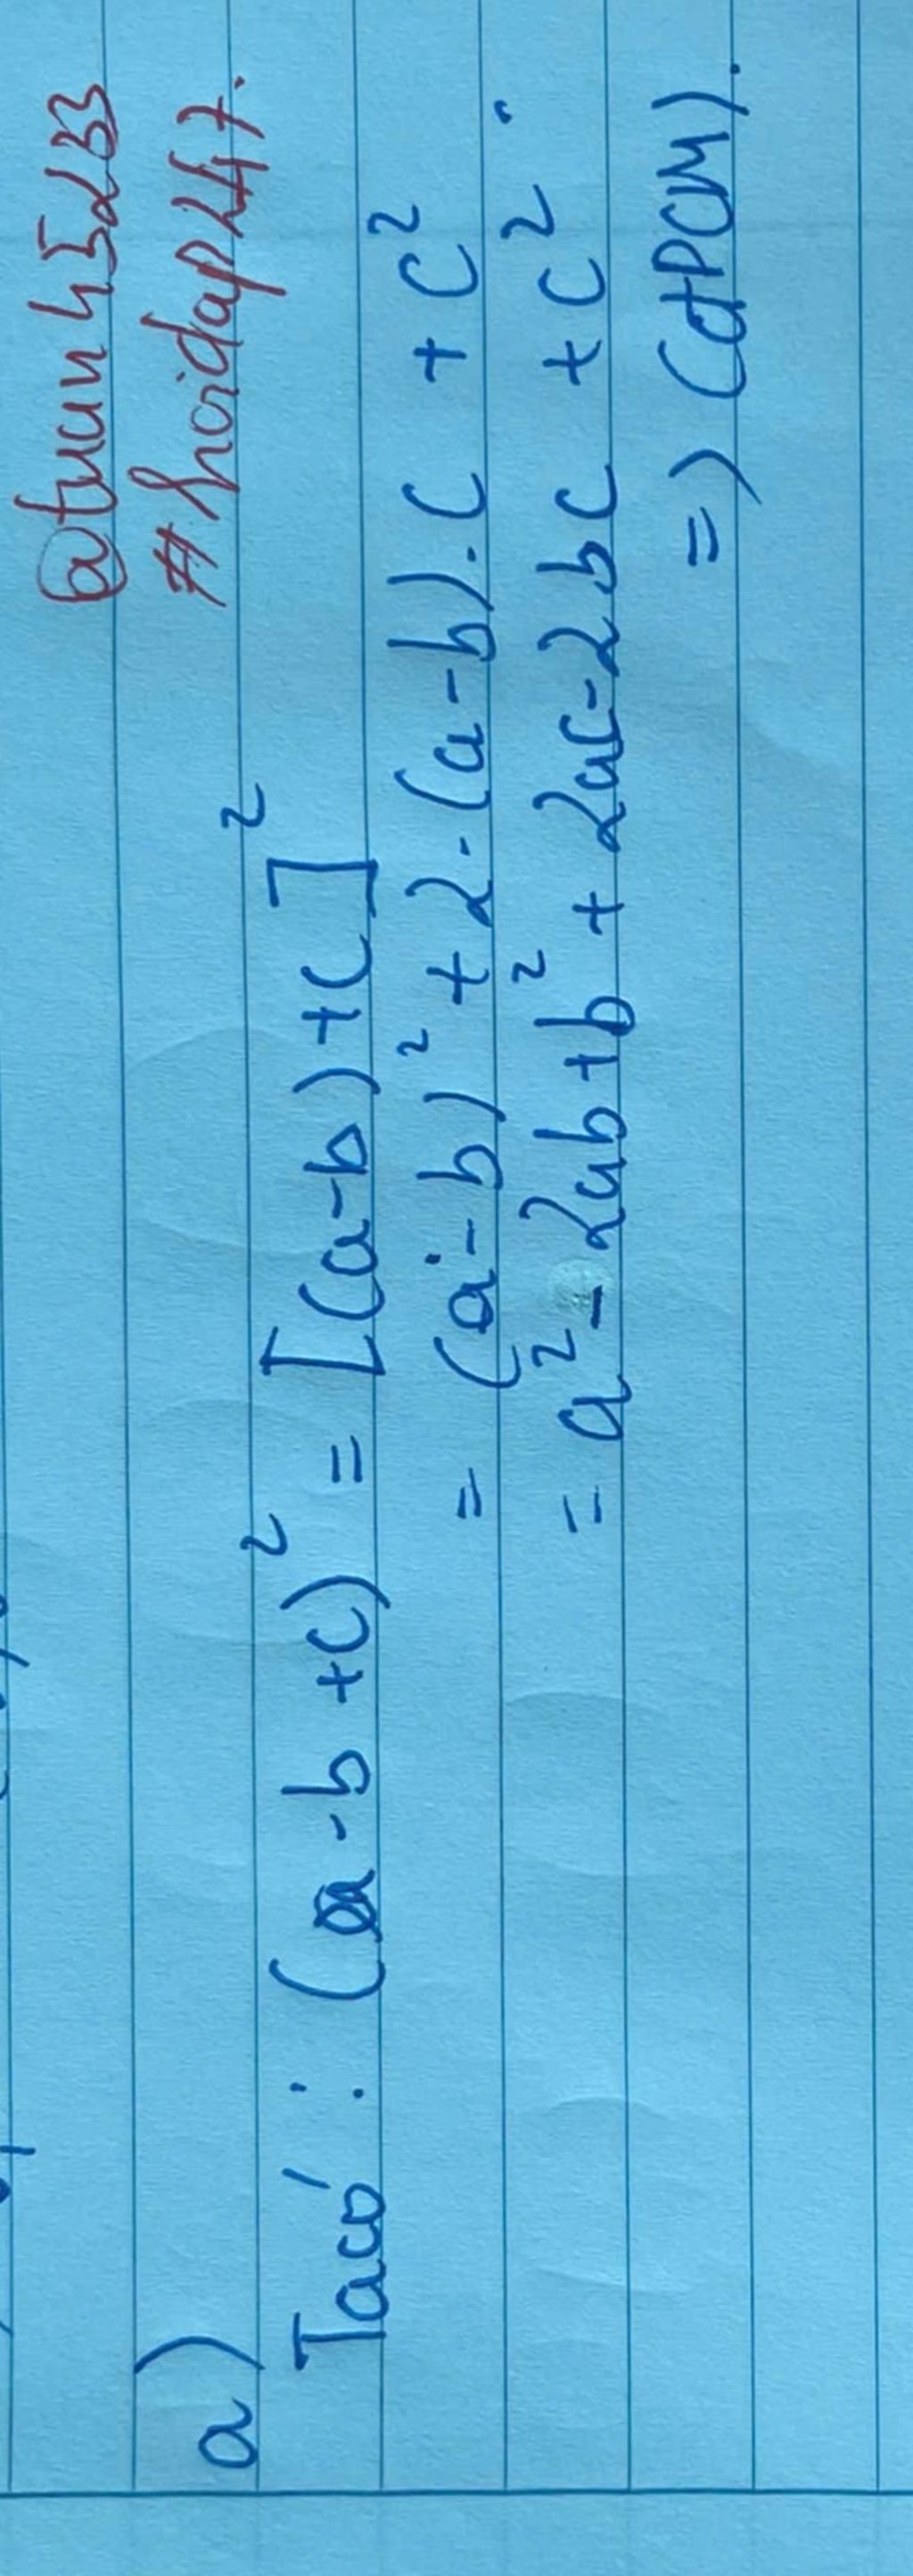 @tuanh5d33
#hoidap247.
a)
Ta có : (a - b + c)² = [(a-b)+c]²
= (a-b)² + 2.(a-b).c + c²
= a² - 2ab + b² + 2ac - 2bc + c²
=> (đPCM).